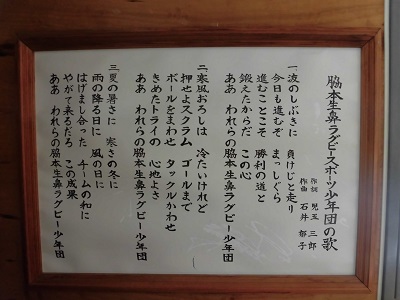 脇本生鼻ラグビースポーツ少年団の歌
作詞 児玉 三郎
作曲 石井 郁子
一、波のしぶきに 負けじと走り
今日も進むぞ まっしぐら
進むことこそ 勝利の道と
鍛えたからだ この心
ああ われらの脇本生鼻ラグビー少年団
二、寒風おろしは 冷たいけれど
押せよスクラム ゴールまで
ボールをまわせ タックルかわせ
きめたトライの 心地よさ
ああ われらの脇本生鼻ラグビー少年団
三、夏の暑さに 寒さの冬に
雨の降る日に 風の日に
はげまし合った チームの和に
やがて来るだろ この成果
ああ われらの脇本生鼻ラグビー少年団